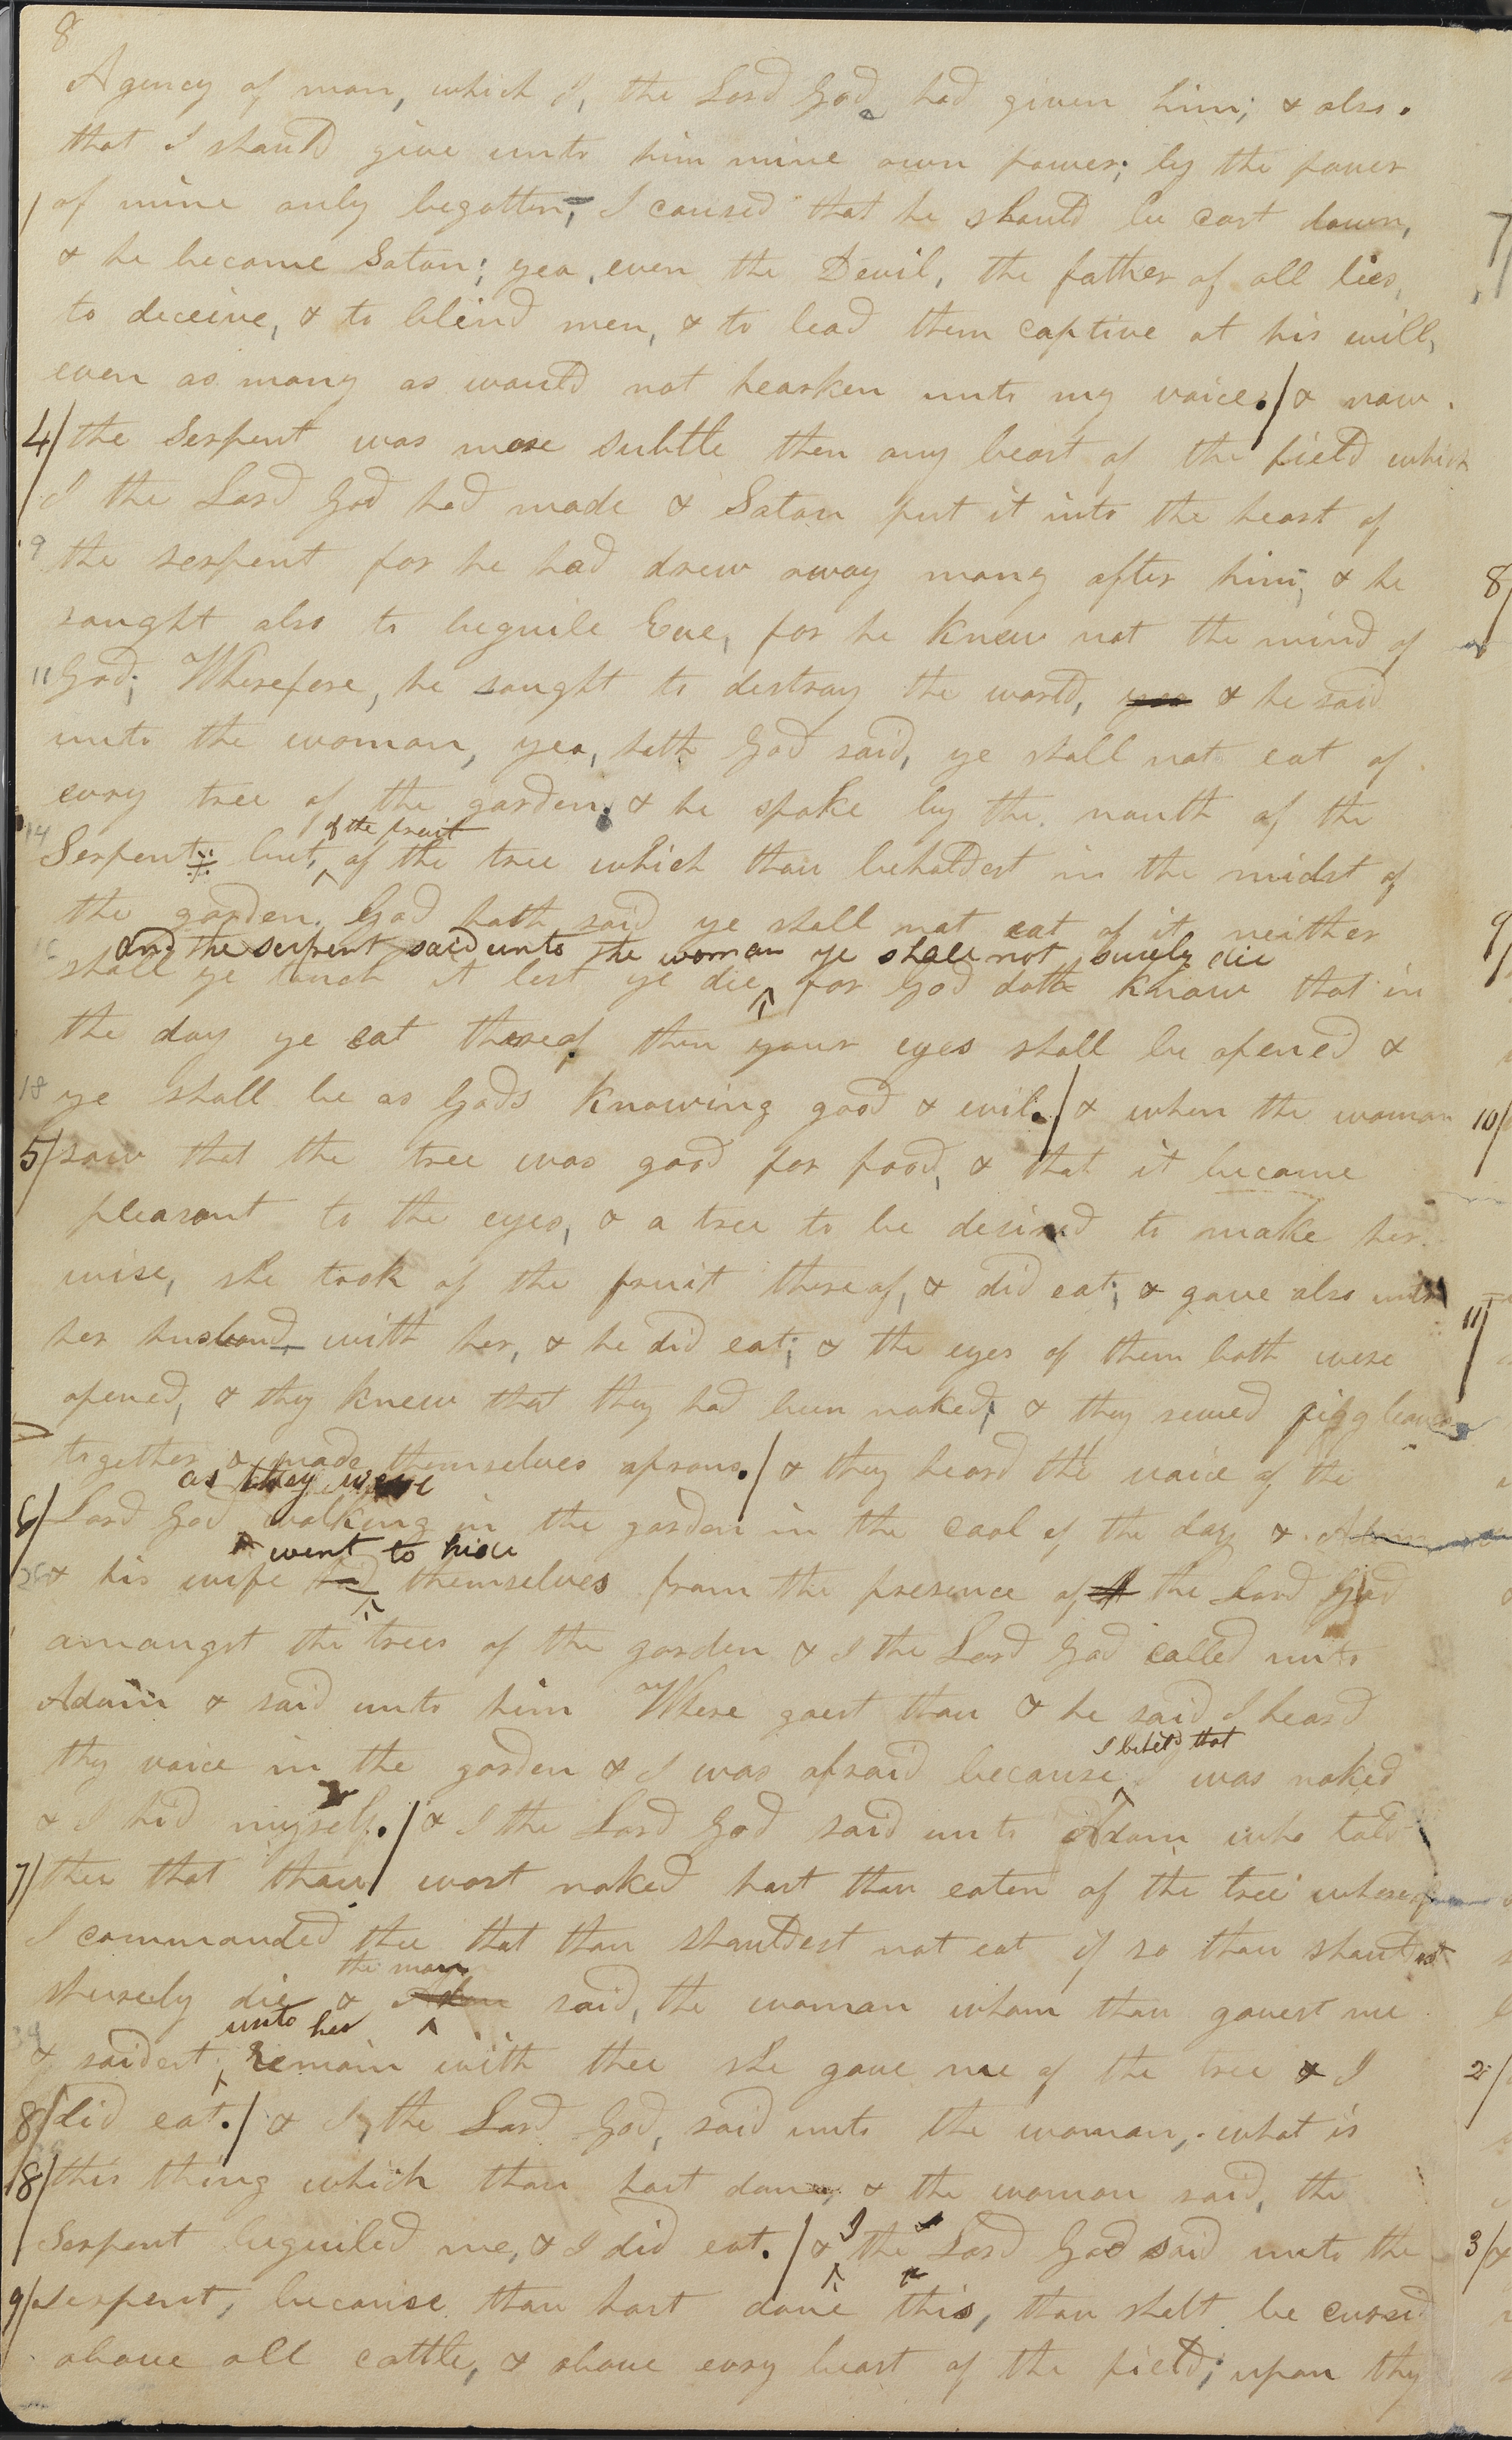 8
Agency of man, which I, the Lord God had given him; & also.
that I should give unto him mine own power; by the power
/ of mine only begotten, I caused that he should be cast down,
& he became Satan; yea, even the Devil, the father of all lies,
to deceive, & to blind men, & to lead them captive at his will,
even as many as would not hearken unto my voice./ & now.
4/ the Serpent was more subtle then any beast of the field which
I the Lord God had made & Satan put it into the heart of
9 the serpent for he had drew away many after him; & he
saught also to beguile Eve, for he knew not the mind of
11 God; Wherefore, he saught to destroy the world, yea & he said
unto the woman, yea, hath God said, ye shall not eat of
evry tree of the garden; & he spoke by the mouth of the
of the fruit
14 Serpent but, of the tree which thou beholdest in the midst of
the garden. God hath said ye shall not eat of it neither
and the serpent said unto the woman ye shall not surely die
shall ye touch it lest ye die for God doth know that in
the day ye eat thereof then your eyes shall be opened &
18 ye shall be as Gods knowing good & evil./ & when the woman
5/ saw that the tree was good for food, & that it became
pleasant to the eyes, & a tree to be desired to make her
wise, she took of the fruit thereof, & did eat; & gave also unto
her husband, with her, & he did eat; & the eyes of them both were
opened, & they knew that they had been naked; & they sewed figg leaves
together & made themselves aprons./ & they heard the voice of the
as they were
6/ Lord God walking in the garden in the cool of the day & Adam
went to hide
& his wife hid themselves from the presence of the Lord God
amongst the trees of the garden & I the Lord God called unto
Adam & said unto him Where goest thou & he said I heard
I beheld that
thy voice in the garden & I was afraid because I was naked
& I hid myself./ & I the Lord God said unto Adam who told
7/ thee that thou wast naked hast thou eaten of the tree whereof
I commanded thee that thou shouldest not eat if so thou shouldest
the man
shurely die & Adam said, the woman whom thou gavest me
unto her
& saidest, remain with thee she gave me of the tree & I
8/ did eat./ & I, the Lord God, said unto the woman, what is
18/ this thing which thou hast done, & the woman said, the
I
Serpent beguiled me, & I did eat./ & the Lord God said unto the
9/ serpent, because thou hast done this, thou shalt be cursed
above all cattle, & above evry beast of the field; upon thy
7
8/
9/
10/
11/
2/
3/ &